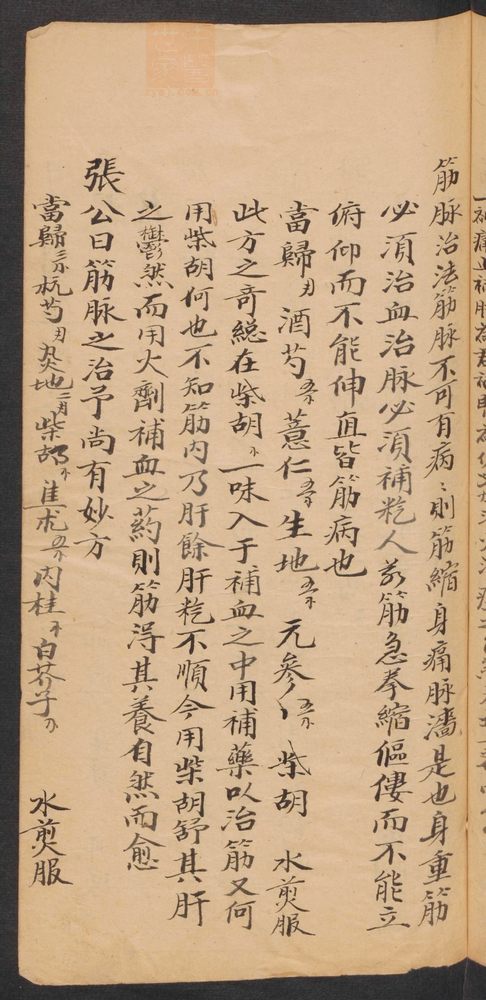 筋脉治法筋脉不可有病〻則筋縮身痛脉濇是也身重筋
必須治血治脉必須補粍人若筋急拳縮傴僂而不能立
俯仰而不能伸直皆筋病也
當歸 酒芍 薏仁 生地 元參 柴胡 水煎服
此方之竒総在柴胡一味入于補血之中用補藥以治筋又何
用柴胡何也不知筋内乃肝餘肝粍不順今用柴胡舒其肝
之鬱然而用火劑補血之葯則筋得其養自然而愈
張公曰筋脉之治予尚有妙方
當歸 杭芍 地 柴胡 焦朮 肉桂 白芥子 水煎服